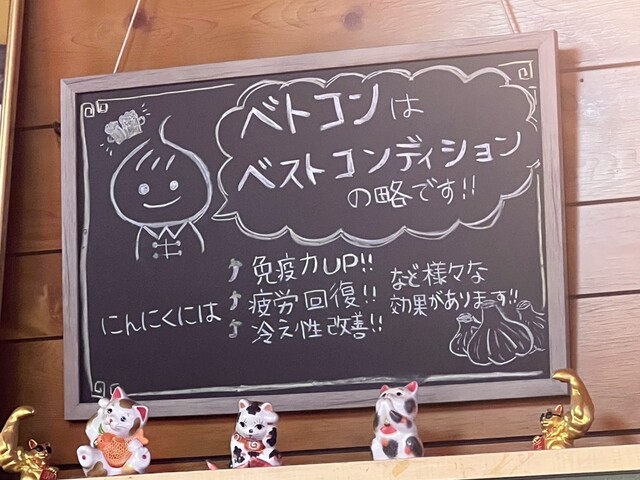 ベトコンは
ベストコンディション
の略です!!
にんにくには
免疫力UP!!
疲労回復!!
冷え性改善!!
など様々な
効果があります!!